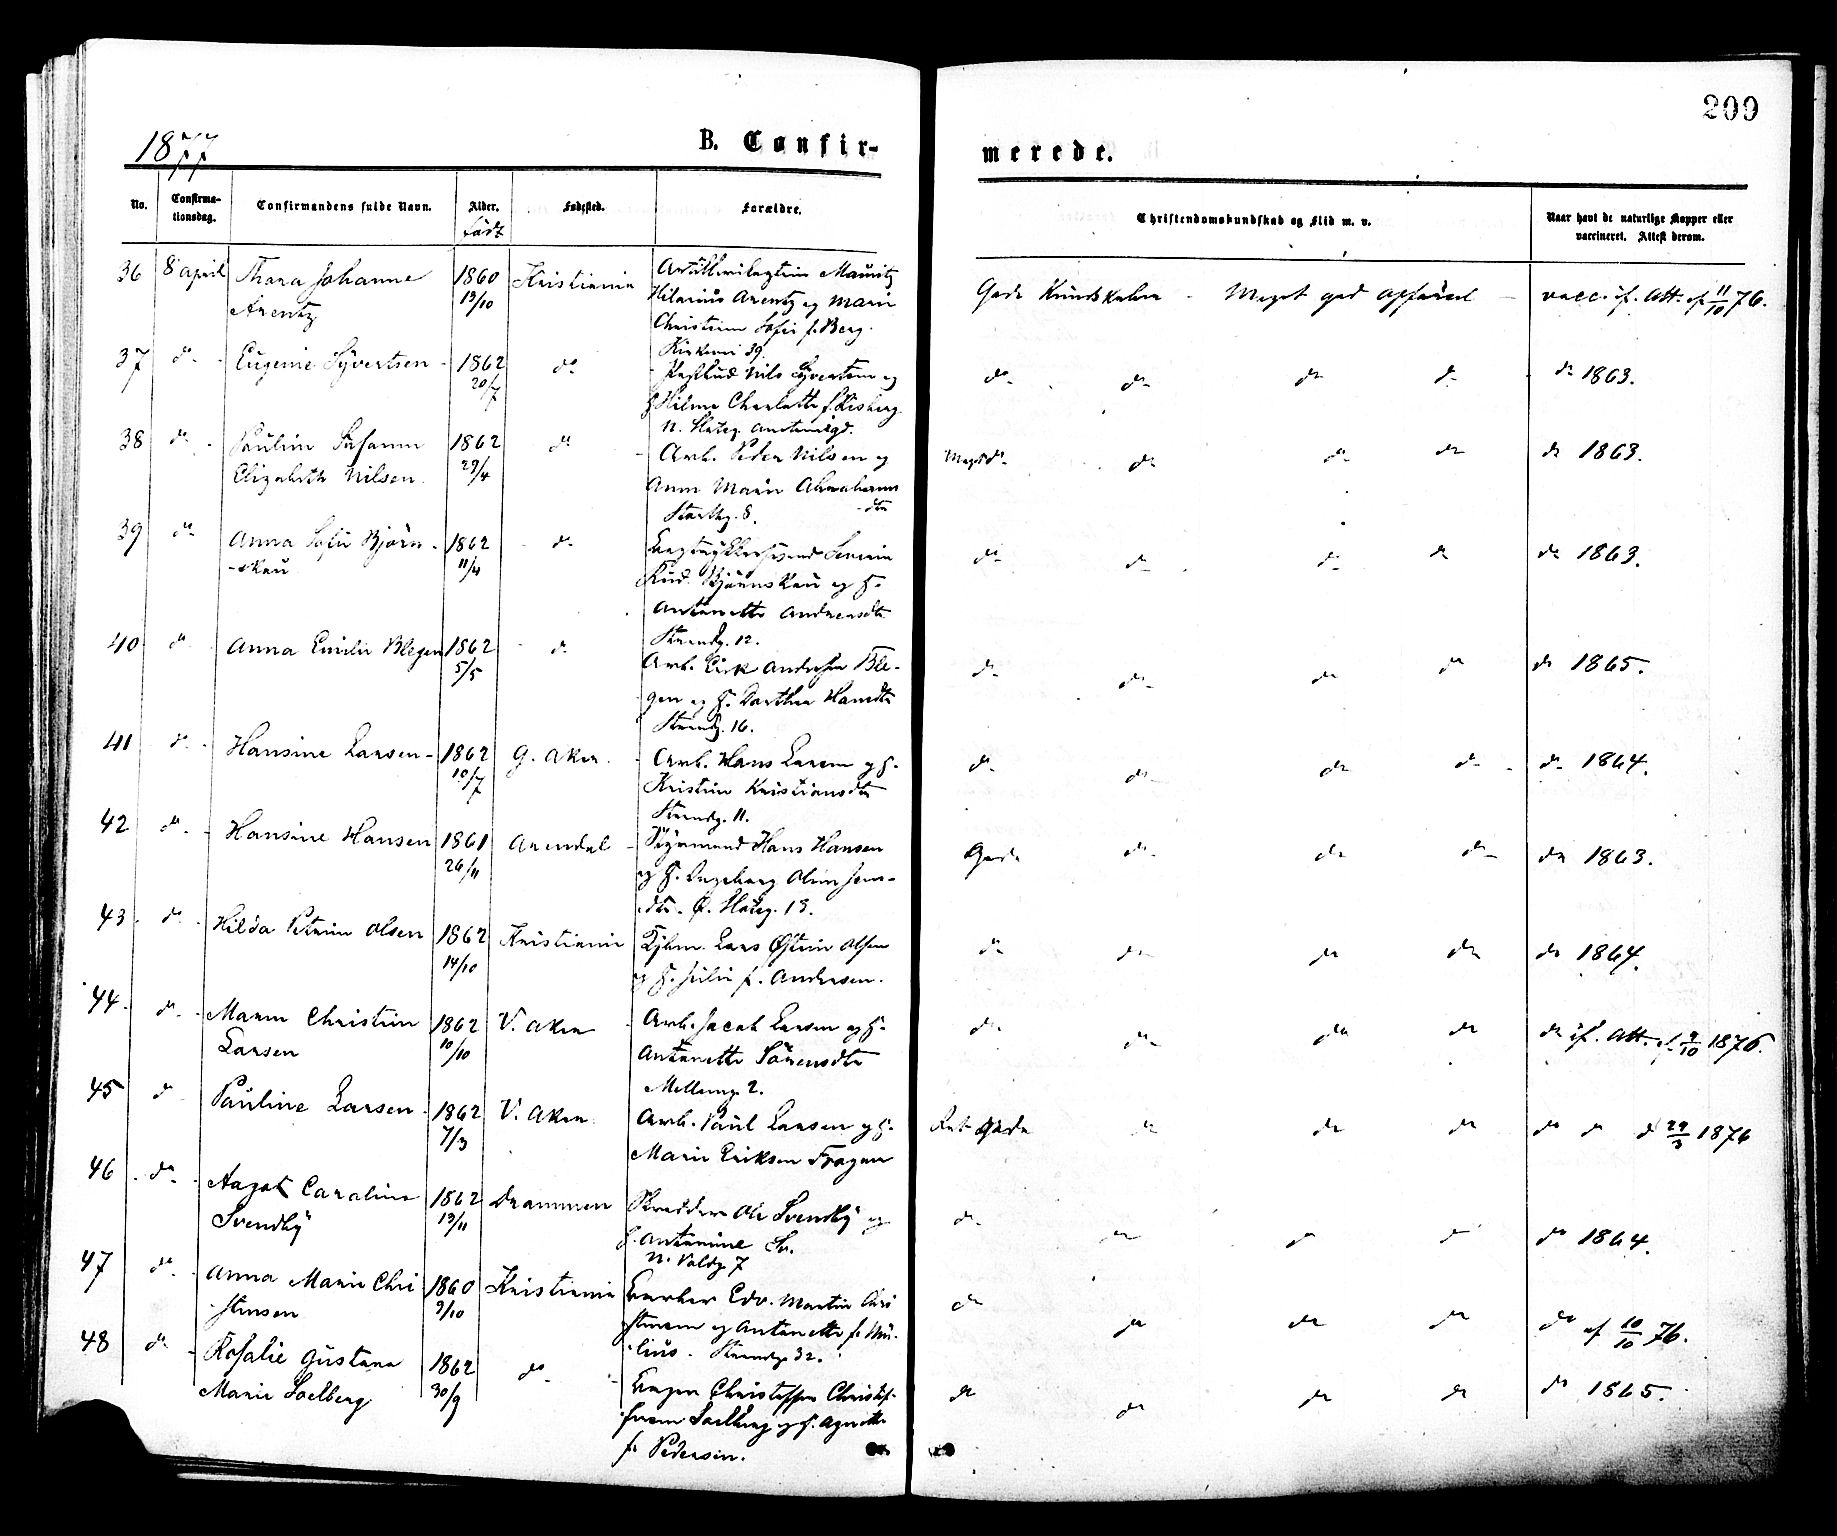 209
1877
B. Confir-
merede.
No.
Confirma-
tionsdag.
Confirmandens fulde Navn.
Alder.
født
Fødested.
Forældre.
Christendomskundskab og Flid m. v.
Naar havt de naturlige Kopper eller
vaccineret. Attest derom.
36 8 april Thora Johanne 1860 Kristiania
Arentz 13/10
Hilarius Arentz og Marie
Christine Sofie f. Berg.
Gode Kundskaber - Meget god Opførsel - vacc. if. Att. af 11/10 76.
37 do Eugenie Syvertsen 1862 do
20/7
Nils Syvertsen og
H. Hilma Charlotte f.
do do do do do 1863.
38 do Pauline Susanne 1862 do
Elizabeth Nilsen 29/4
Arb. Peder Nilsen og
Anne Marie Abrahams
dtr
Storthg. 8.
Meget do do do do do 1863.
39 do Anna Sofie Bjørn- 1862 do
-skau 11/4
Severin
Bjørnskau og H.
Antonette Andreasdtr
Strandg. 12.
do do do do do 1863.
40 do Anna Emilie Blegen 1862 do
5/5
Arb. Eirk Andersen Ble-
gen og H. Dorthea Hansdtr
Strandg. 16.
do do do do do 1865.
41 do Hansine Larsen 1862 G. Aker
10/7
Arb. Hans Larsen og H.
Kristine Kristiansdtr
Strandg. 11.
do do do do do 1864.
42 do Hansine Hansen 1861 Arendal
26/11
Hans Hansen
og H. Ingeborg Oline Jens-
dtr. Ø. Slotsg. 13.
Gode do do do do 1863.
43 do Hilda Petrine Olsen 1862 Kristiania
14/10
Kjbm. Lars Østen Olsen
og H. Julie f. Andersen.
do do do do do 1864.
44 do Maren Christine 1862 V. Aker
Larsen 10/10
Arb. Jacob Larsen og H.
Antonette Sörensdtr
Mellemg. 2.
do do do do do if. Att. af 9/10 1876.
45 do Pauline Larsen 1862 V. Aker
7/3
Arb. Paul Larsen og H.
Marie Eriksen
Ret Gode do do do do do d 29/3 1876
46 do Aagot Caroline 1862 Drammen
Svendby 13/11
Skrædder Ole Svendby og
H. Antonine Sv.
N. Voldg. 7
do do do do do 1864.
47 do Anna Marie Chri 1860 Kristiania
stensen 9/10
Edv. Martin Chri
stensen og Antonette f. My-
lius. Strandg. 32.
do do do do do af 10/10 76.
48 do Rosalie Gustava 1862 do
Marie Soelberg 30/9
Christoffer Christof-
fersen Soelberg og H. Agnethe
f. Pedersen.
do do do do do 1865.